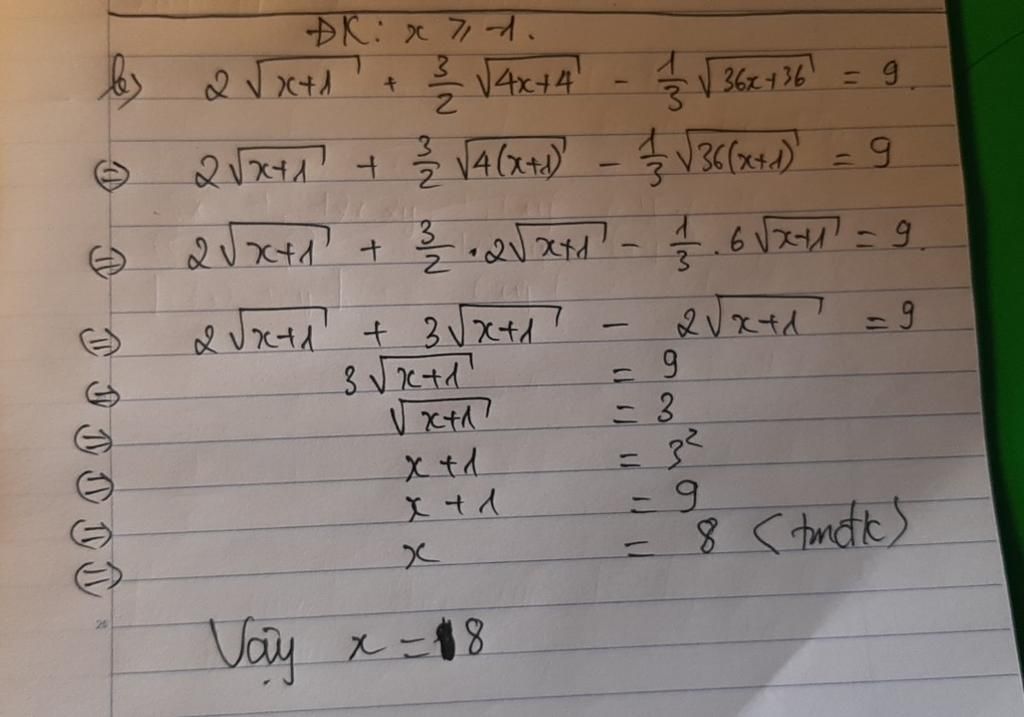 ĐK: x ≥ -1.
b) 2√(x+1) + 3/2 √(4x+4) - 1/3 √(36x+36) = 9.
⇔ 2√(x+1) + 3/2 √(4(x+1)) - 1/3 √(36(x+1)) = 9
⇔ 2√(x+1) + 3/2 . 2√(x+1) - 1/3 . 6√(x+1) = 9.
⇔ 2√(x+1) + 3√(x+1) - 2√(x+1) = 9
⇔ 3√(x+1) = 9
⇔ √(x+1) = 3
⇔ x+1 = 3²
⇔ x+1 = 9
⇔ x = 8 (tmđk)
Vậy x = 8